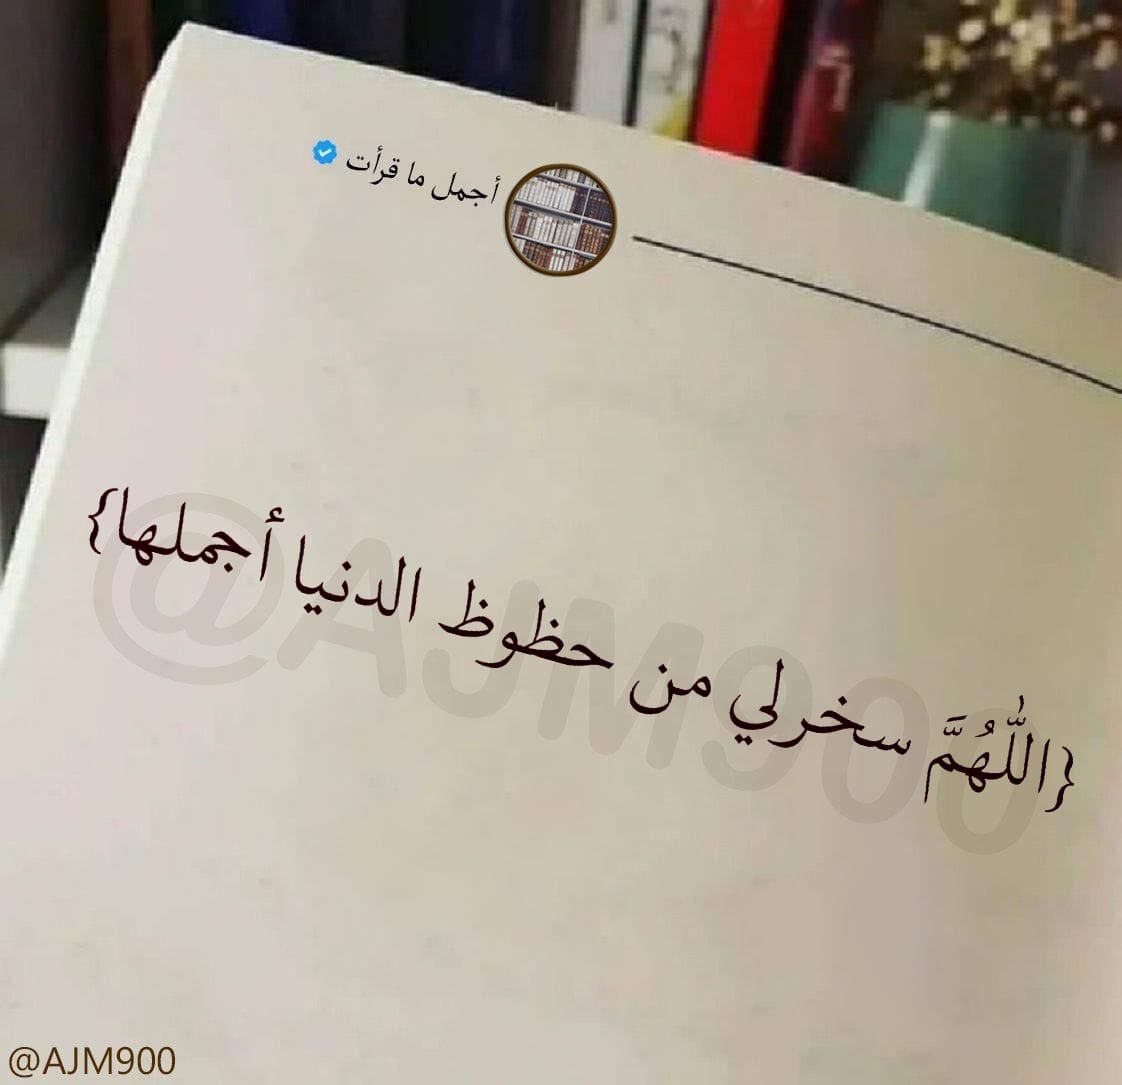 أجمل ما قرأت
{اللَّهُمَّ سخرلي من حظوظ الدنيا أجملها}
@AJM900
@AJM900